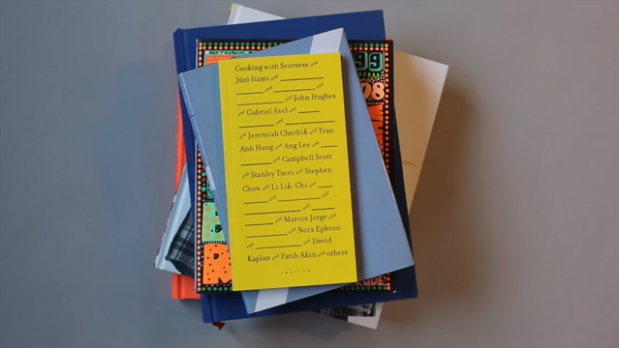 Cooking with Scorsese and
Jūzō Itami and ________
____ and ________ and
________ and John Hughes
and Gabriel Axel and ____
________ and ________
and Jeremiah Chechik and Tran
Anh Hung and Ang Lee and ____
______ and Campbell Scott
and Stanley Tucci and Stephen
Chow and Li Lik-Chi and ____
____ and ________ and
________ and ____
______ and Marcos Jorge and
________ and Nora Ephron
and ________ and David
Kaplan and Fatih Akin and others
99
98